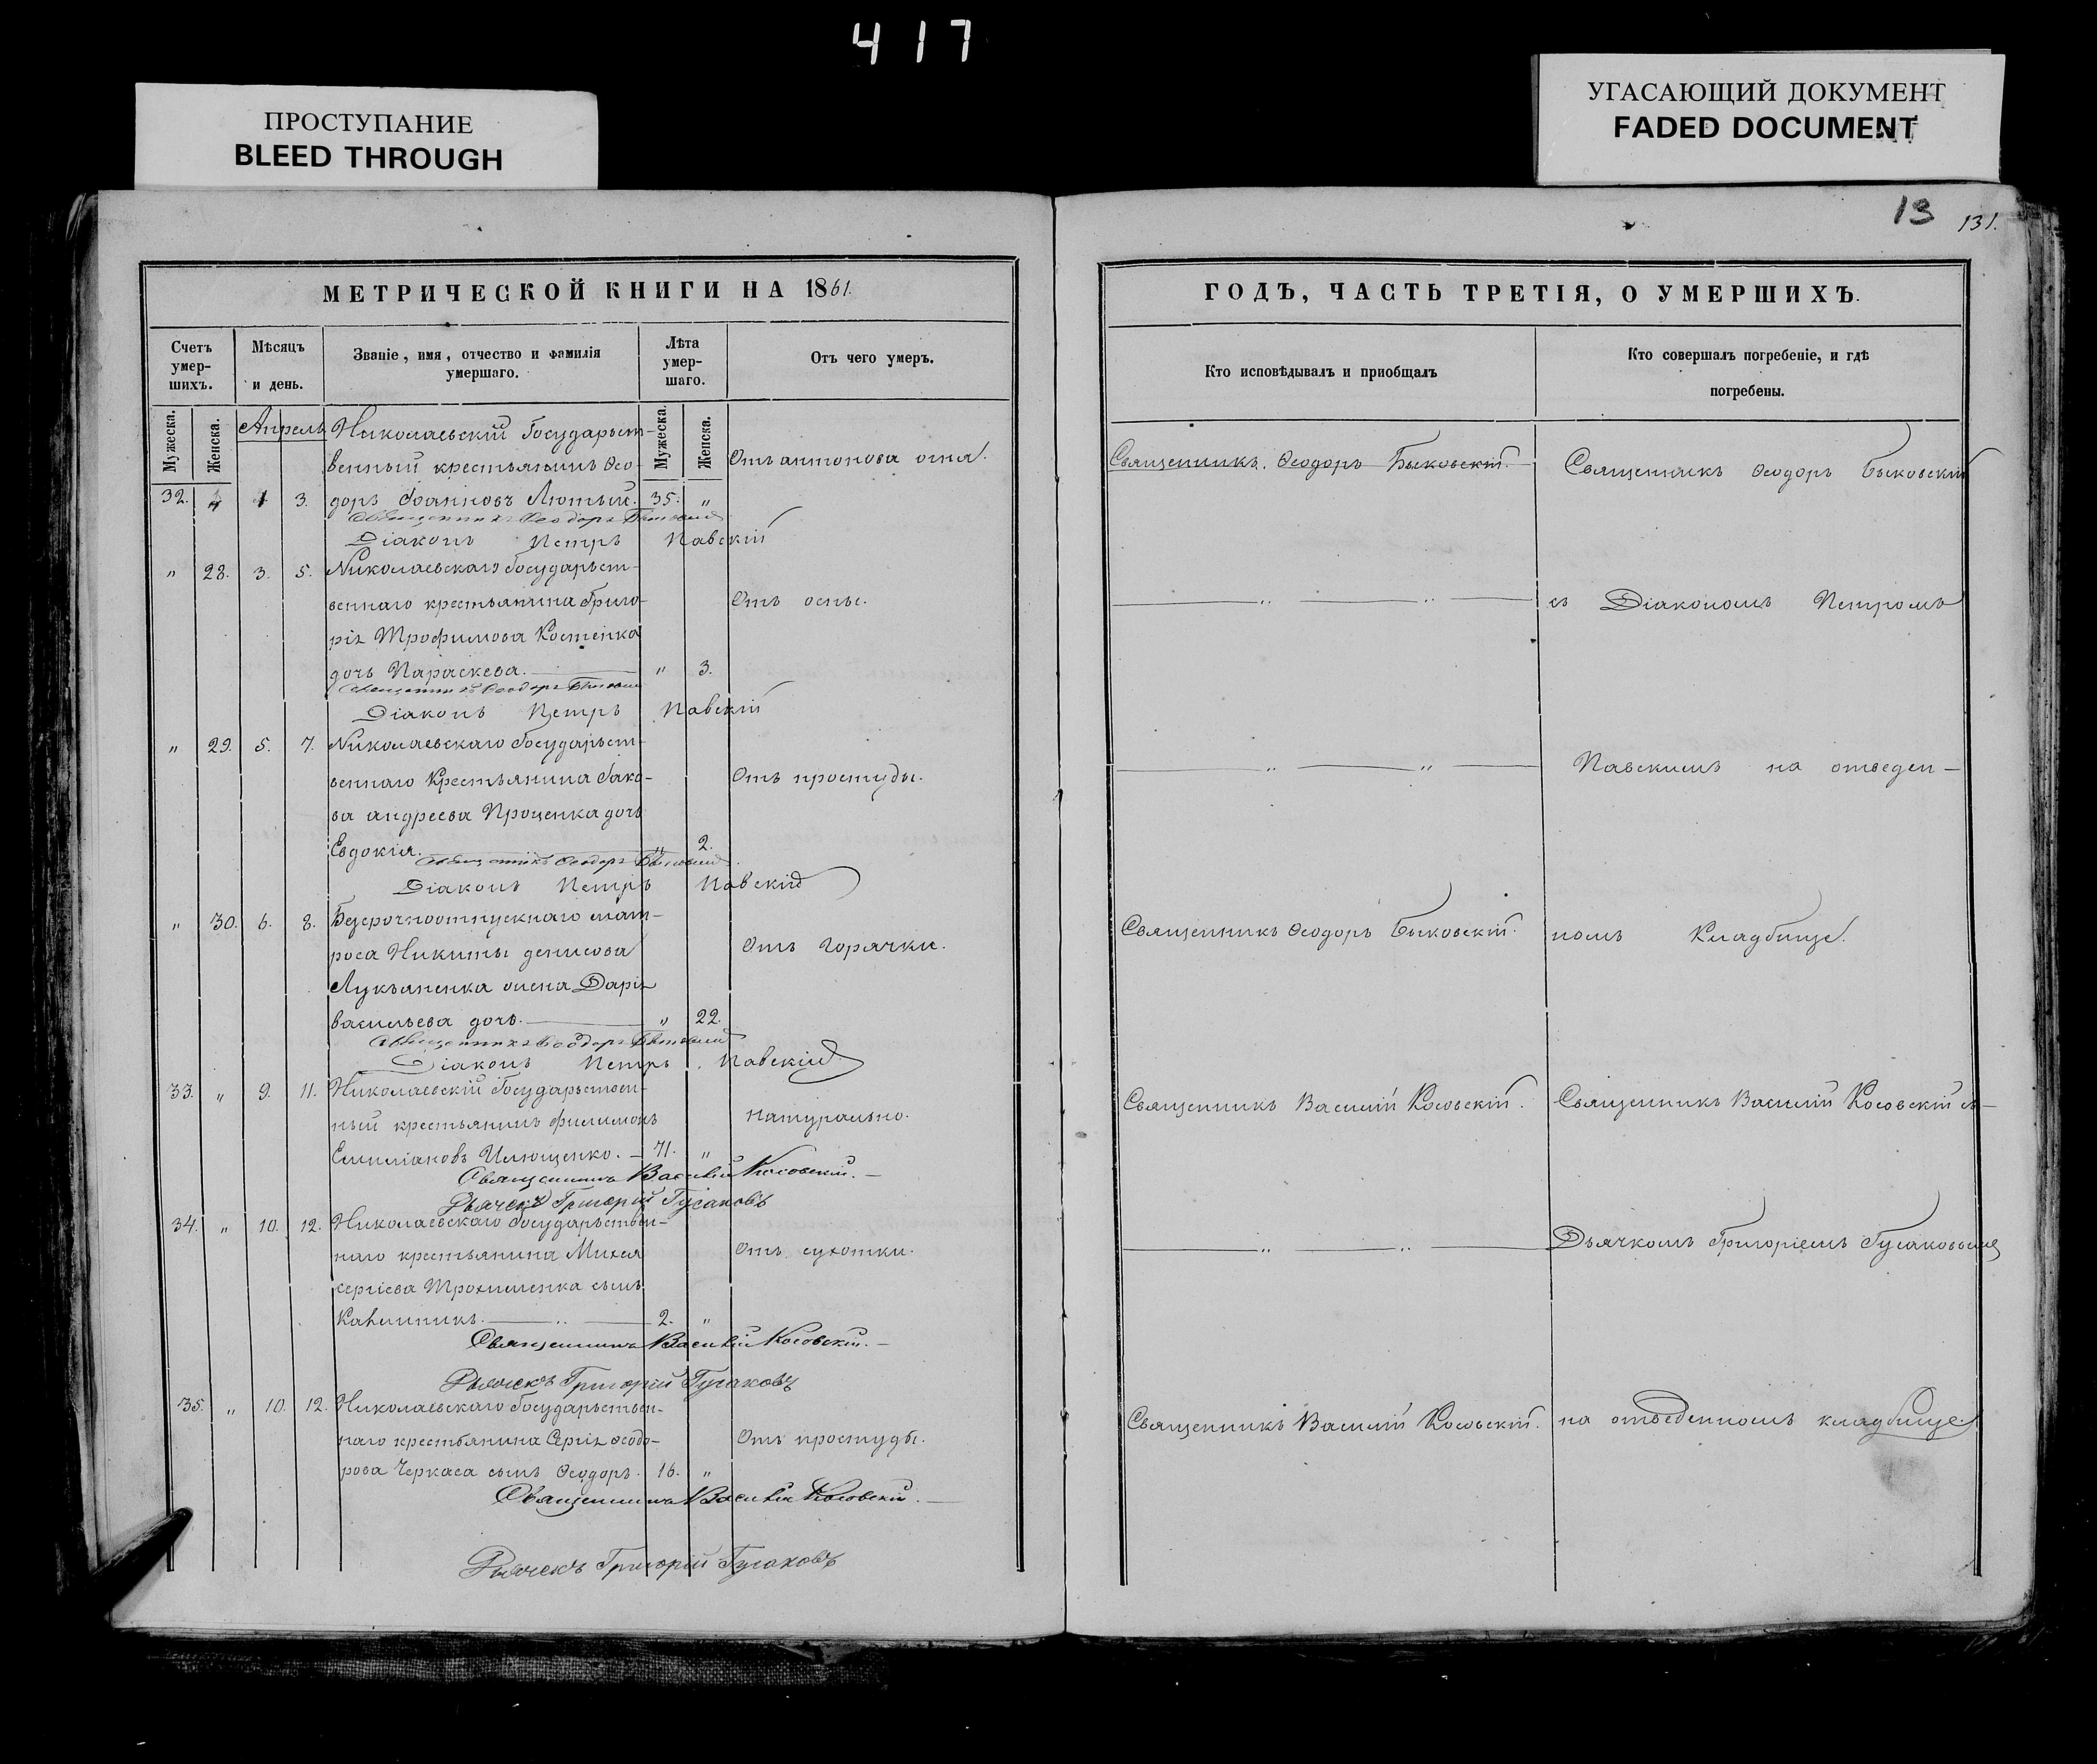 417
ПРОСТУПАНИЕ
BLEED THROUGH
УГАСАЮЩИЙ ДОКУМЕНТ
FADED DOCUMENT
13 131.
МЕТРИЧЕСКОЙ КНИГИ НА 1861.
Счетъ умер-шихъ.
Мѣсяцъ и день.
Званіе, имя, отчество и фамилія умершаго.
Лѣта умер-шаго.
Отъ чего умеръ.
Мужеска. Женска. Апрель Мужеска. Женска.
Николаевскій Государьст-
венный крестьянинъ Ѳео- Отъ антонова огня.
32. 1 3. доръ Іоанновъ Лютый. 35. „
Священникъ Ѳеодоръ Быковскій
Діаконъ Петръ Павскій
„ 28. 3. 5. Николаевскаго Государьст-
веннаго крестьянина Григо- Отъ оспы.
рія Трофимова Костенка
дочь Параскева. „ 3.
Священникъ Ѳеодоръ Быковскій
Діаконъ Петръ Павскій
„ 29. 5. 7. Николаевскаго Государьст-
веннаго Крестьянина Іако- Отъ простуды.
ва андреева Проценка дочь
Евдокія. „ 2.
Священникъ Ѳеодоръ Быковскій
Діаконъ Петръ Павскій
„ 30. 6. 8. Безсрочноотпускнаго мат-
роса Никиты денисова Отъ Горячки.
Лукьяненка жена Дарія
васильева дочь. „ 22.
Священникъ Ѳеодоръ Быковскій
Діаконъ Петръ Павскій
33. „ 9. 11. Николаевскій Государьствен-
ный крестьянинъ филимонъ натурально.
Емиліановъ Илющенко. 71. „
Священникъ Василій Косовскій.
Дьячекъ Григорій Гусаковъ
34. „ 10. 12. Николаевскаго Государьствен-
наго крестьянина Михея Отъ сухотки.
сергіева Трохименка сынъ
Калинникъ. „ 2. „
Священникъ Василій Косовскій.
Дьячекъ Григорій Гусаковъ
35. „ 10. 12. Николаевскаго Государьствен-
наго крестьянина Сергія Ѳеодо- Отъ простуды.
рова Черкаса сынъ Ѳеодоръ. 16. „
Священникъ Василій Косовскій.
Дьячекъ Григорій Гусаковъ
ГОДЪ, ЧАСТЬ ТРЕТІЯ, О УМЕРШИХЪ.
Кто исповѣдывалъ и пріобщалъ
Кто совершалъ погребеніе, и гдѣ погребены.
Священникъ Ѳеодоръ Быковскій. Священникъ Ѳеодоръ Быковскій
„ „ съ Діакономъ Петромъ
„ „ Павскимъ на отведен-
Священникъ Ѳеодоръ Быковскій. номъ Кладбище.
Священникъ Василій Косовскій. Священникъ Василій Косовскій съ
„ „ Дьячкомъ Григоріемъ Гусаковымъ
Священникъ Василій Косовскій. на отведенномъ кладбище